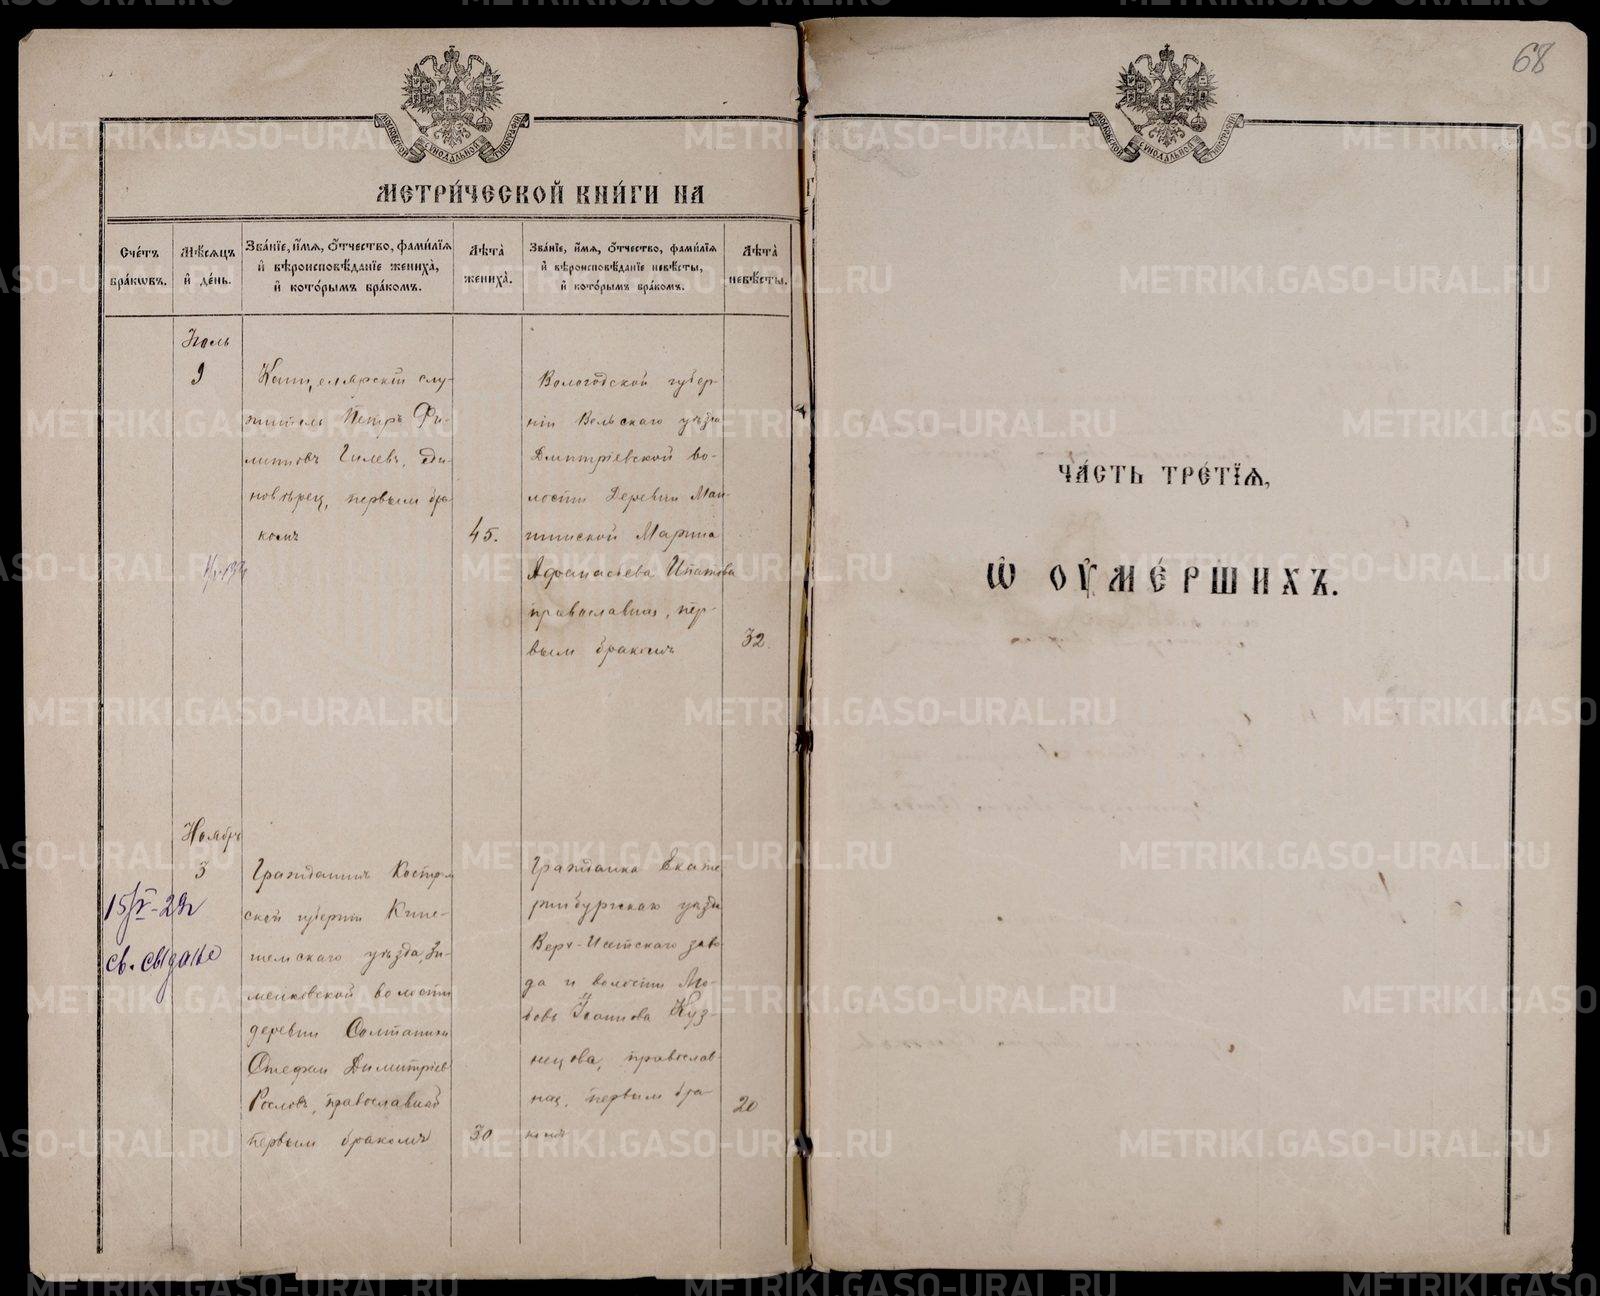 68
МОСКОВСКОЙ СѴНОДАЛЬНОЙ ТИПОГРАФІИ
МЕТРИ́ЧЕСКОЙ КНИ́ГИ НА
Сче́тъ бра́кѡвъ.
Мѣ́сяцъ и҆ де́нь.
Зва́нїе, и҆́мѧ, ѻ҆́тчество, фами́лїѧ
и҆ вѣроисповѣ́данїе жениха̀,
и҆ кото́рымъ бра́комъ.
Лѣ́та жениха̀.
Зва́нїе, и҆́мѧ, ѻ҆́тчество, фами́лїѧ
и҆ вѣроисповѣ́данїе невѣ́сты,
и҆ кото́рымъ бра́комъ.
Лѣ́та невѣ́сты.
Іюль
9
Канцелярскій слу-
житель Петръ Фи-
липповъ Гилевъ, еди-
новѣрец, первым бра
комъ
45.
Вологодской губер
ніи Вельскаго уѣзда
Дмитріевской во-
лости Деревни
Марина
Афанасьева Ипатова
православная, пер-
вым бракомъ
32.
Ноябрь
3
15/V-29г
св. выдано
Гражданинъ Костром
ской губерніи Кине-
шемскаго уѣзда,
волости
деревни
Стефан Димитріев
Рословъ, православный
первым бракомъ
30
Гражданка Екате
ринбургскаго уѣзда
Верх-Исетскаго заво-
да и волости Лю-
бовь Іоаннова Куз-
нецова, православ-
ная, первым бра-
комъ
20
МОСКОВСКОЙ СѴНОДАЛЬНОЙ ТИПОГРАФІИ
ЧА́СТЬ ТРЕ́ТЇѦ,
Ѡ҆ ОУ҆МЕ́РШИХЪ.
METRIKI.GASO-URAL.RU